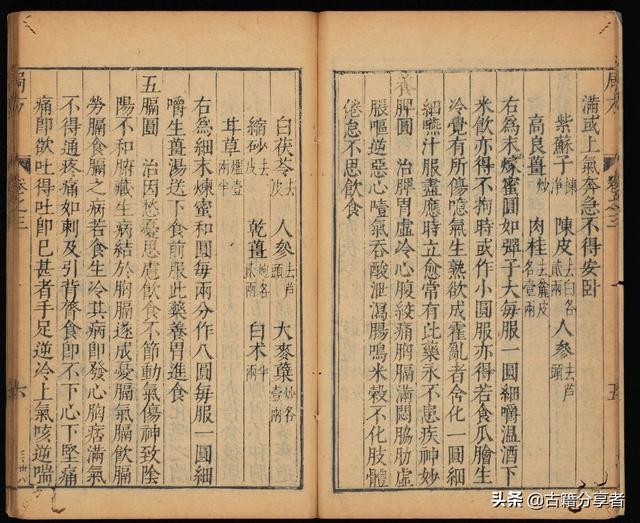 滿或上氣奔急不得安卧
紫蘇子揀淨 陳皮去白各貳兩 人參去芦頭
高良薑炒 肉桂去麄皮各壹兩
右為末煉蜜圓如彈子大每服一圓細嚼溫酒下
米飲亦得不拘時或作小圓服亦得若食瓜膾生
冷覺有所傷噫氣生熱欲成霍亂者含化一圓
細嚥汁服盡應時立愈常有此藥永不患疾神妙
養脾圓 治脾胃虛冷心腹絞痛胸膈滿悶脇肋虛
脹嘔逆惡心噫氣吞酸泄瀉腸鳴米穀不化肢體
倦怠不思飲食
局方
卷之三
五
白茯苓去皮 人參去芦頭 大麥蘗炒各壹兩
縮砂去皮 乾薑炮各貳兩 白术半兩
甘草爁壹兩半
右為細末煉蜜和圓每兩分作八圓每服一圓細
嚼生薑湯送下食前服此藥養胃進食
五膈圓 治因愁憂思慮飲食不節動氣傷神致陰
陽不和腑藏生病結於胸膈遂成憂膈氣膈飲膈
勞膈食膈之病若食生冷其病即發心胸痞滿氣
不得通疼痛如刺及引背膂食即不下心下堅痛
痛即欲吐得吐即已甚者手足逆冷上氣咳逆喘
局方
卷之三
六
头条 @古籍分享者